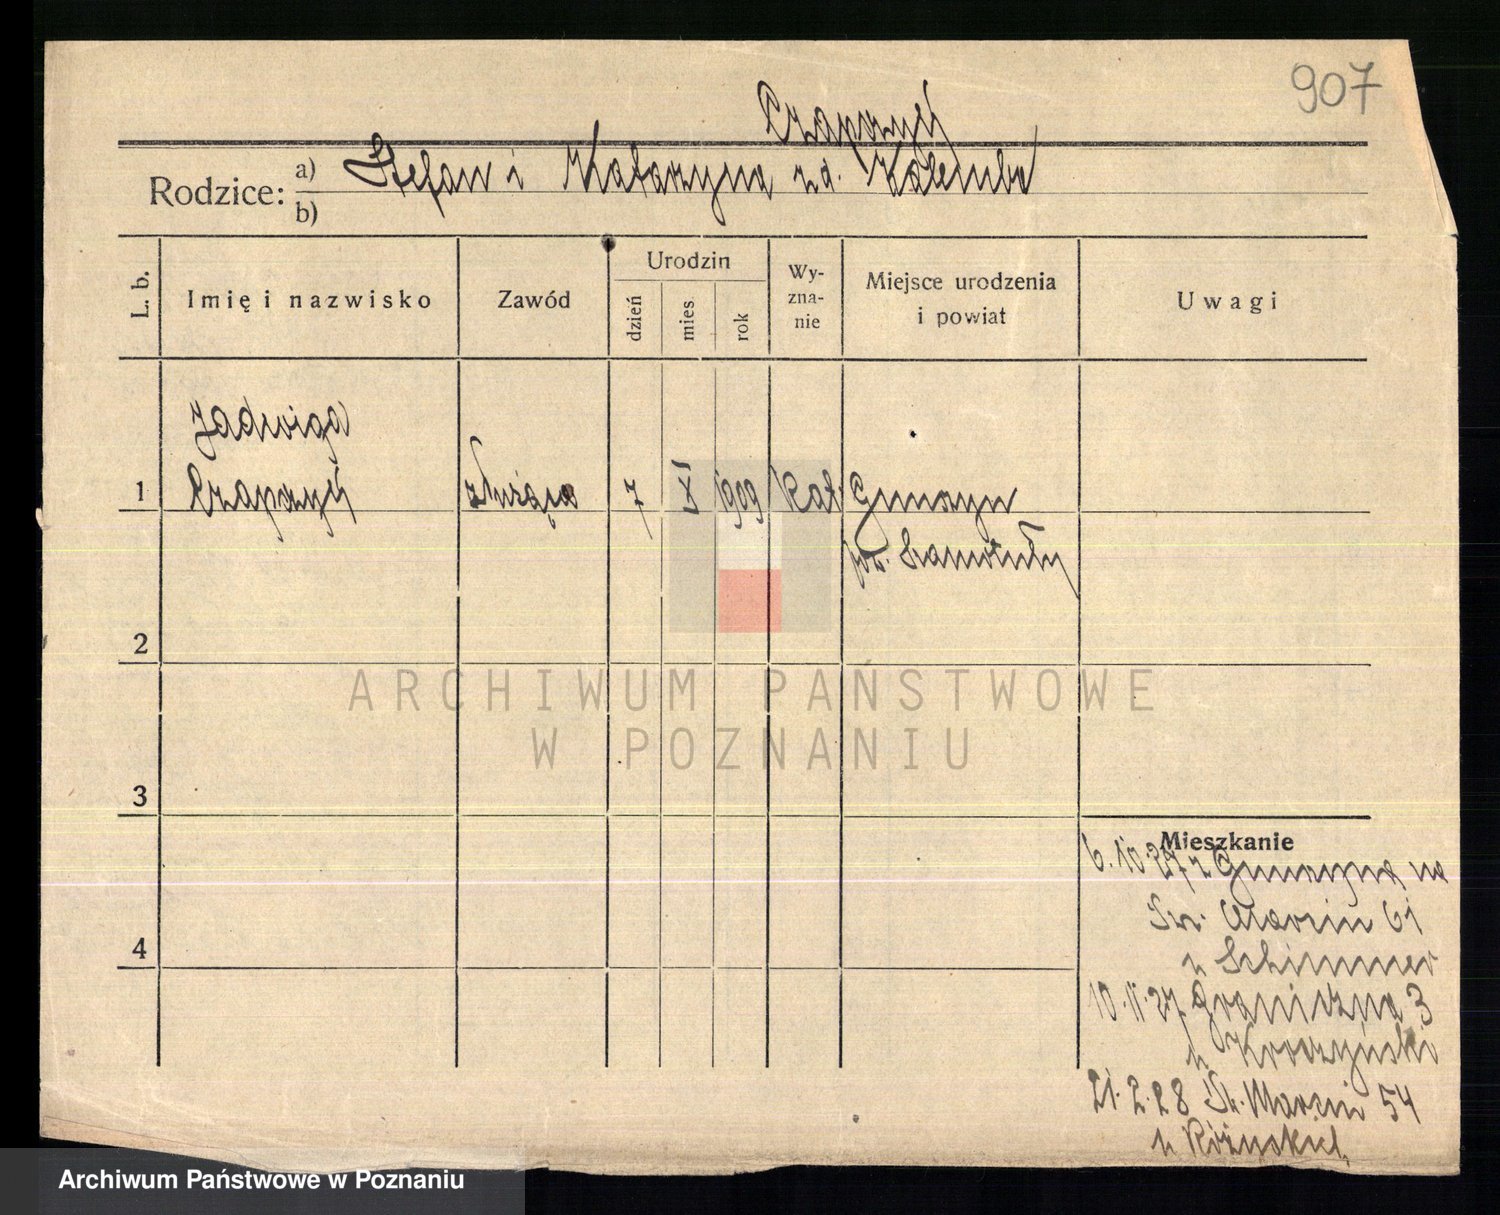 907
Czapszyś
Rodzice: a) Stefan i Katarzyna z d. Kalemba
b)
L. b. Imię i nazwisko Zawód Urodzin dzień mies rok Wyznanie Miejsce urodzenia i powiat Uwagi
Jadwiga
1 służąca 7 X 1909 kat
pow. Szamotuły
2
ARCHIWUM PAŃSTWOWE
W POZNANIU
3
Mieszkanie
6.10.27 z na
Św. Marcin 61
u Schimmer
4
10.11.27 Graniczna 3
u
21.2.28 Św. Marcin 54
u
Archiwum Państwowe w Poznaniu